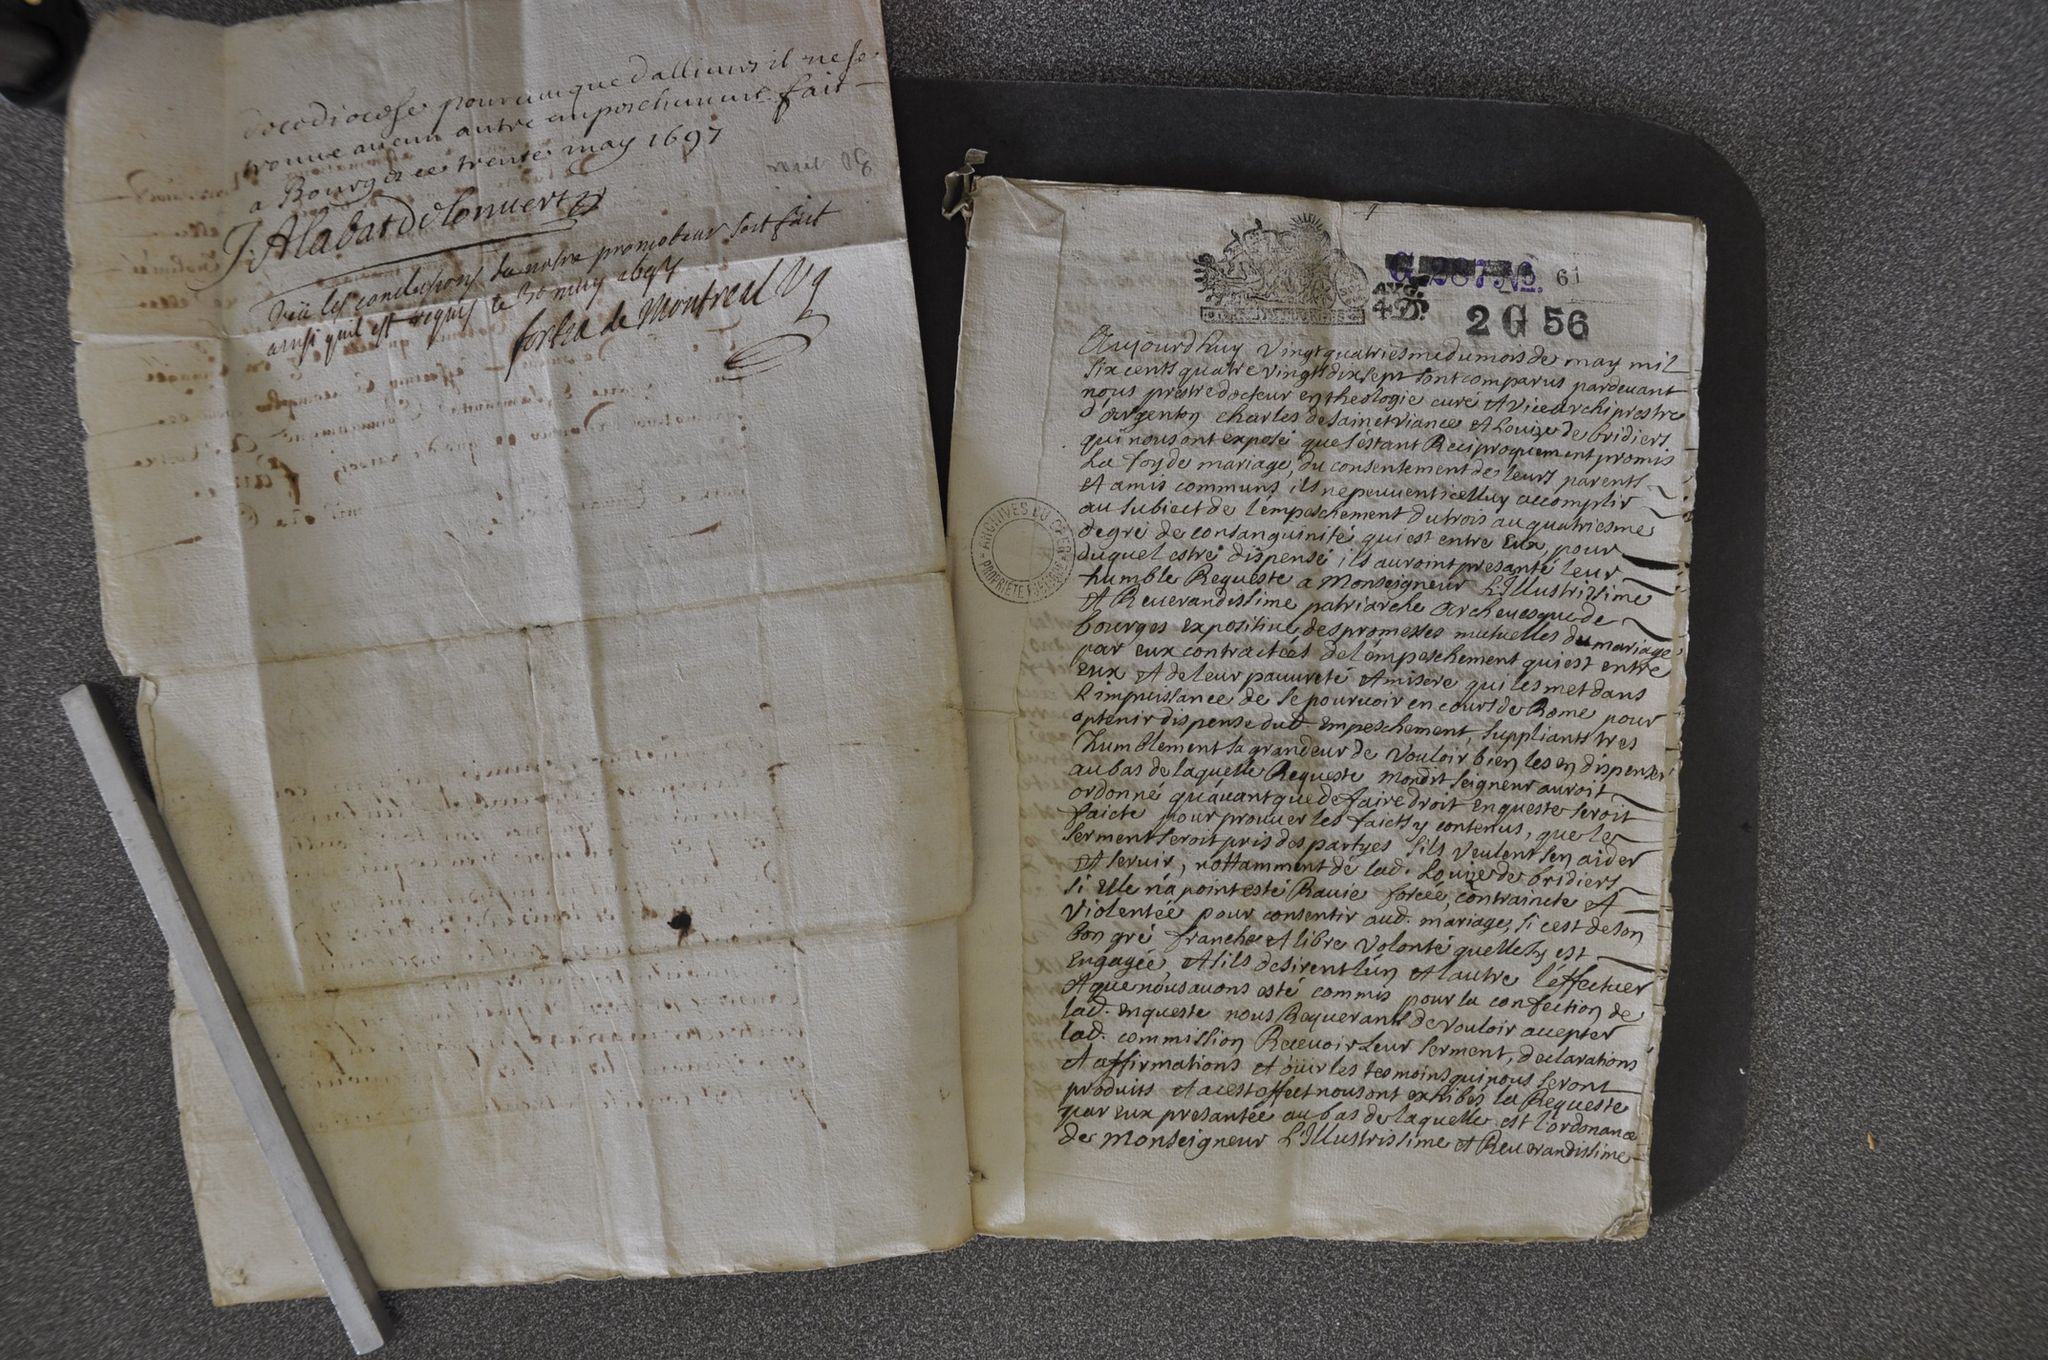 de ce diocese pourveu que dallieurs il ne se
trouve aucun autre empeschement fait
a Bourges ce trente may 1697
J. Alabat
Veü les conclusions de nostre promoteur soit fait
ainsi quil est requis le 30 may 1697
de Montreal Vg
G 287 No. 61
AVG.
2 G 56
ARCHIVES DU CHER
PROPRIETE PUBLIQUE
Aujourdhuy Vingt quatriesme du mois de may mil
six cents quatre vingts dix sept sont comparus pardevant
nous prestre docteur en theologie curé et vicearchiprestre
d'argenton charles de sainctviance et Louize de bridiers
qui nous ont exposé que s'estant Reciproquement promis
La foy de mariage, du consentement de leurs parents
et amis communs, ils ne peuvent icelluy accomplir
au subiect de l'empeschement du trois au quatriesme
degré de consanguinité qui est entre eux, pour
duquel estre dispensé ils auroint presanté leur
humble Requeste a Monseigneur L'Illustrissime
et Reverandissime patriarche archevesque de
bourges expositive des promesses mutuelles du mariage
par eux contractées de l'empeschement qui est entre
eux et de leur pauvreté et misere qui les met dans
l'impuissance de se pourvoir en court de Rome pour
optenir dispense dud. empeschement, suppliants tres
humblement sa grandeur de vouloir bien les en dispenser
au bas de laquelle Requeste mondit seigneur auroit
ordonné quavant que de faire droit enqueste seroit
faicte pour prouver les faicts y contenus, que le
serment seroit pris des partyes s'ils veulent sen aider
et servir, nottamment de lad. Louize de bridiers
si elle n'a point esté Ravie forcée, contraincte et
violentée pour consentir aud. mariage, si cest de son
bon gré franche et libre volonté quelle sy est
engagée, et sils desirent lun et lautre l'effectuer
et que nous avons esté commis pour la confection de
lad. enqueste nous Requerants de vouloir accepter
lad. commission Recevoir leur serment, declarations
et affirmations et ouir les tesmoins qui nous seront
produits et a cest effect nous ont exhibés la Requeste
par eux presantée au bas de laquelle est l'ordonance
de Monseigneur L'Illustrissime et Reverandissime